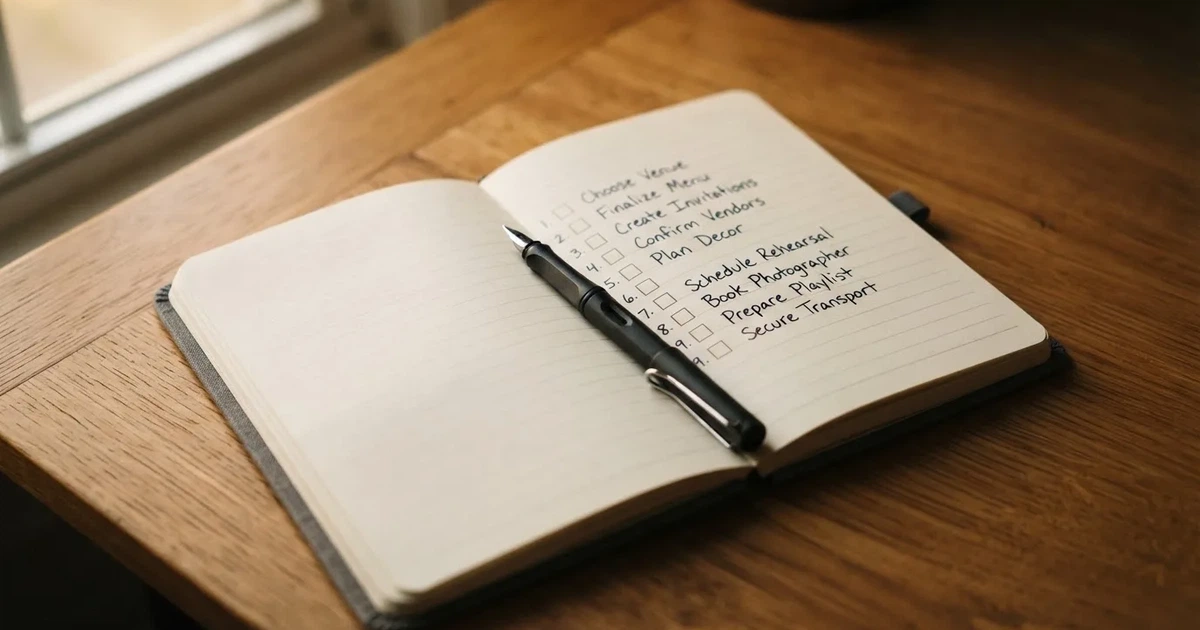 1. Choose Venue
2. Finalize Menu
3. Create Invitations
4. Confirm Vendors
5. Plan Decor
6.
7. Schedule Rehearsal
8. Book Photographer
9. Prepare Playlist
9. Secure Transport